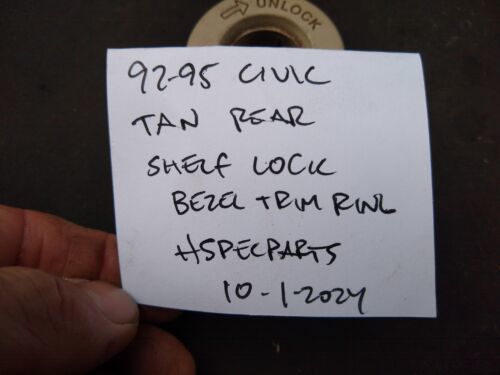 UNLOCK
92-95 CIVIC
TAN REAR
SHELF LOCK
BEZEL TRIM RING
HSPECPARTS
10-1-2024